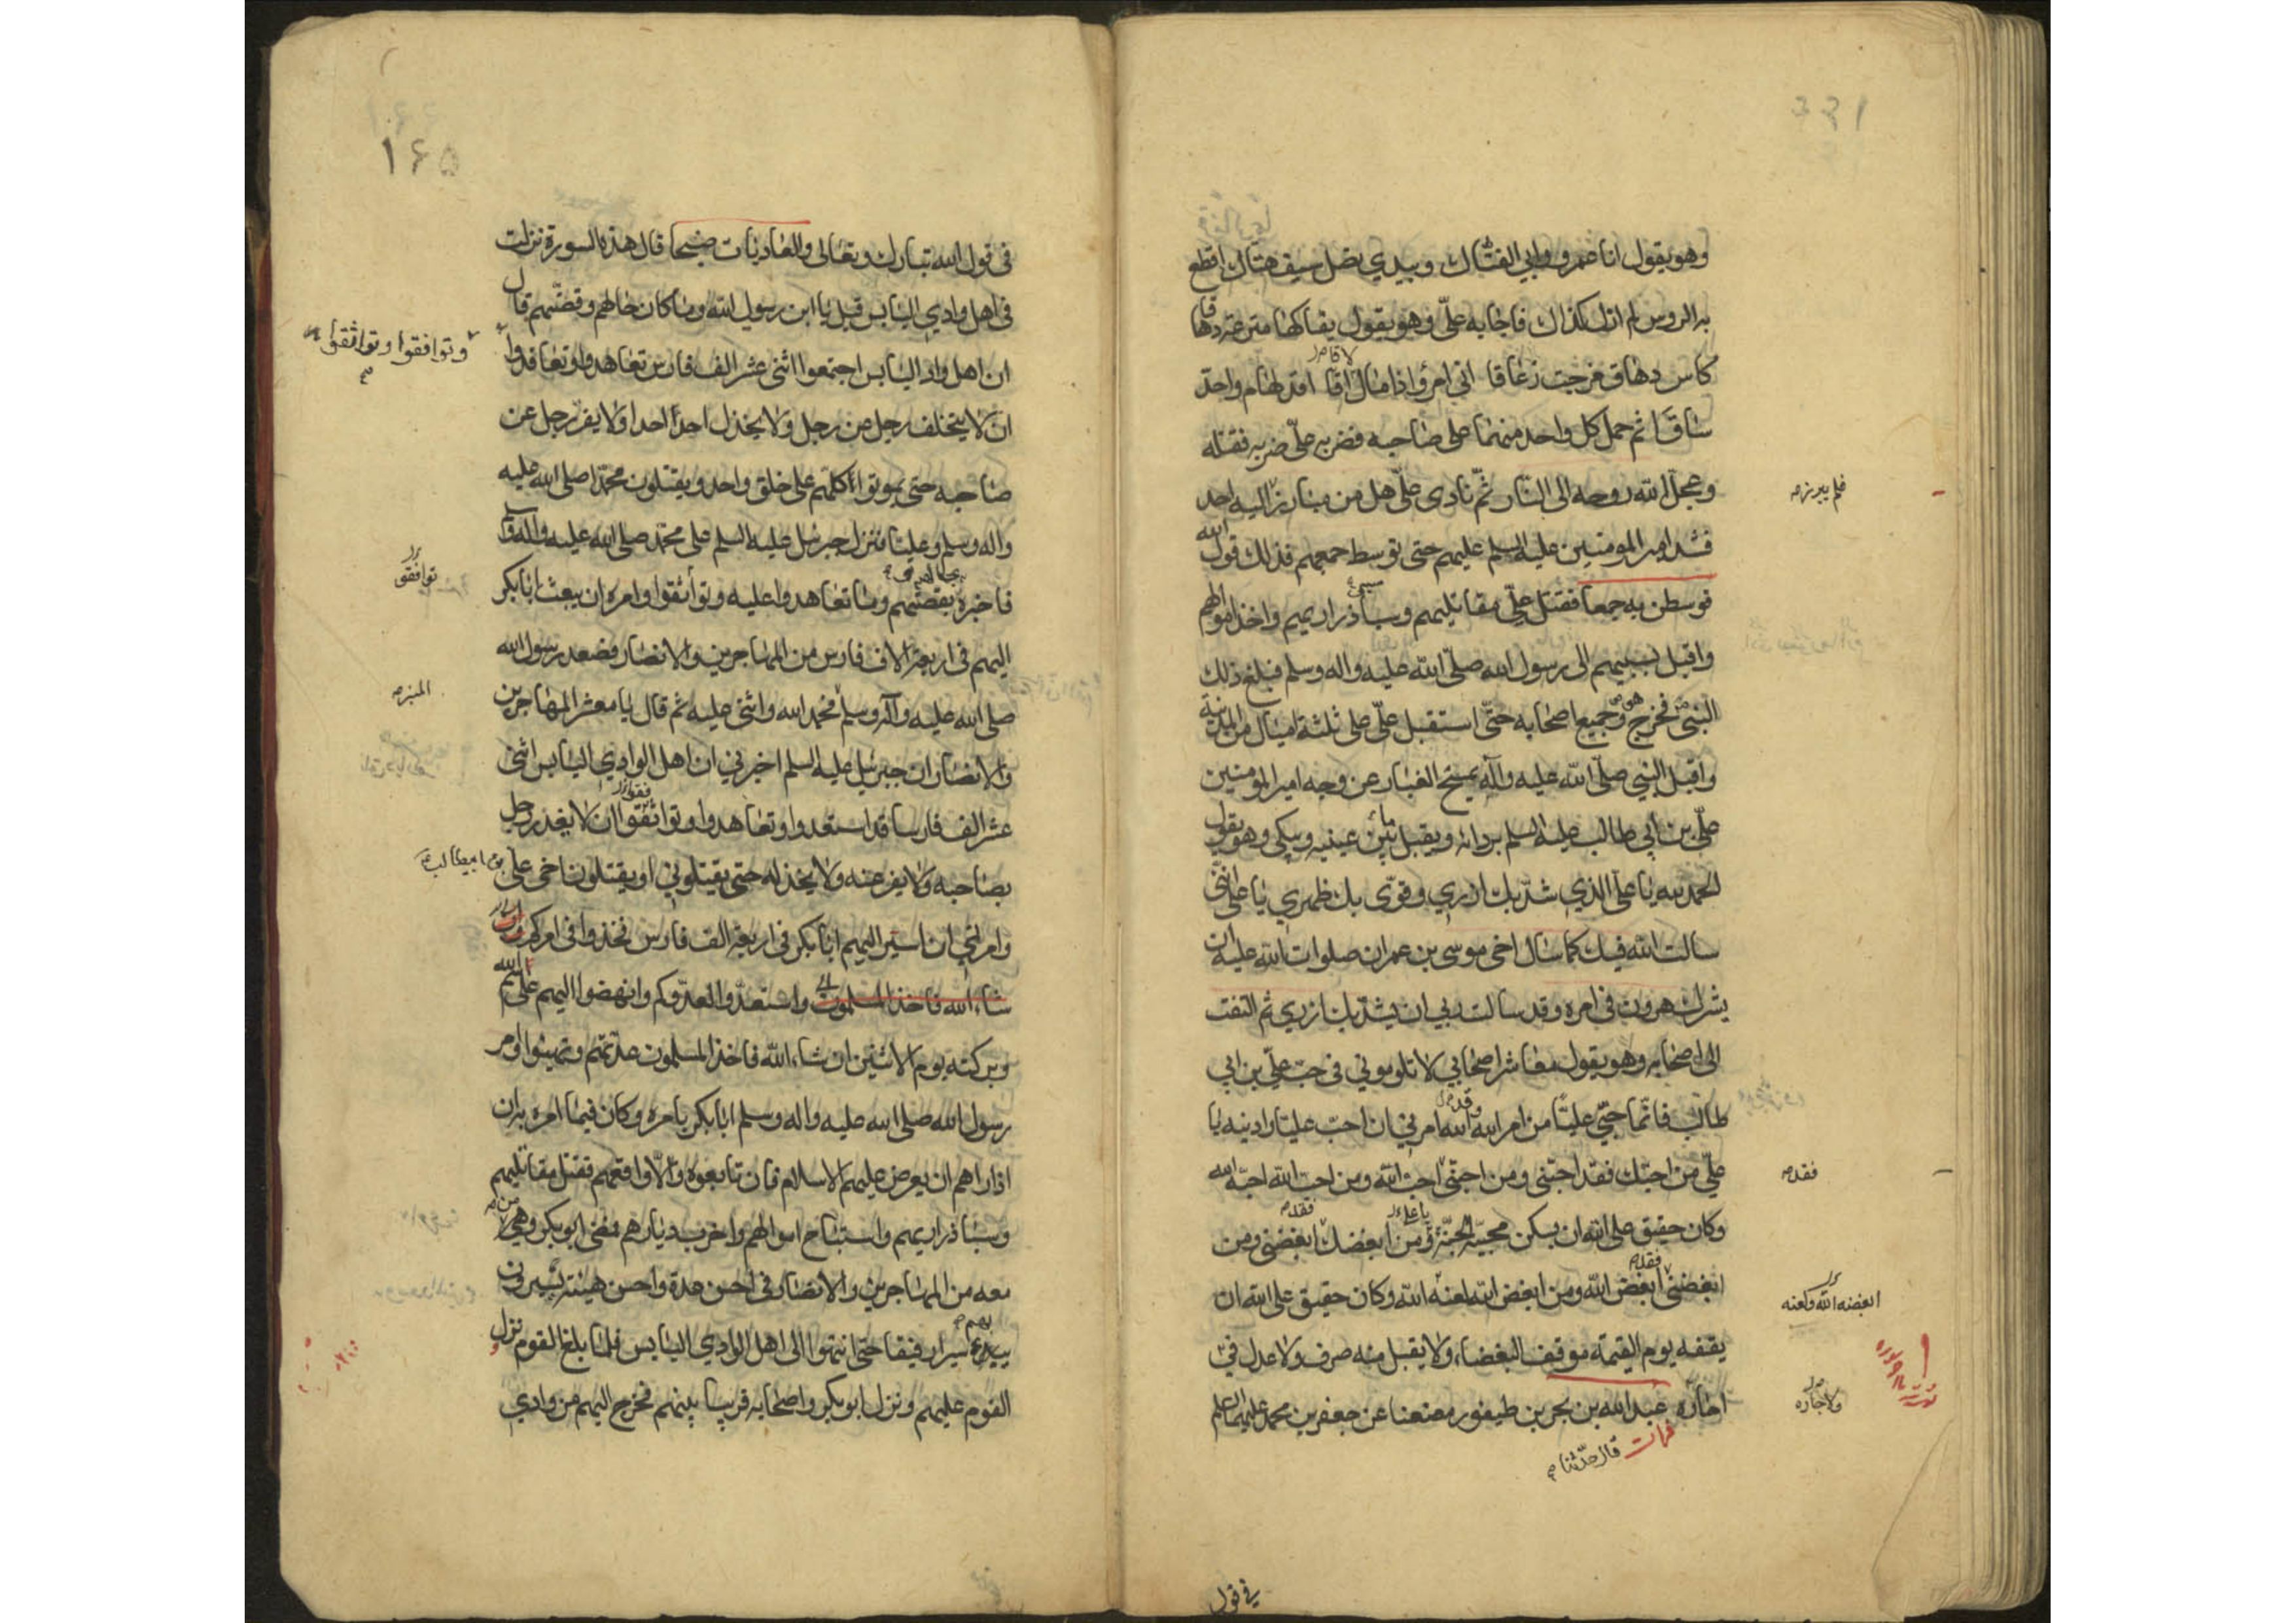 وهو يقول انا عمرو وابي الفتاك وبيدي نصل سيف هتاك اقطع
به الروس لم ازل كذاك فاجابه علي وهو يقول يفاكها مترعة دهاقا
كاس دهاق مزجت زعاقا اني امرؤ اذا ما لاقا اقد لهام واجذ
ساقا ثم حمل كل واحد منهما على صاحبه فضربه علي ضربه فقتله
وعجل الله روحه الى النار ثم نادى علي هل من مبارز اليه احد
فلم يبرز
فشد امير المومنين عليه السلم عليهم حتى توسط جمعهم فذلك قول الله
فوسطن به جمعا فقتل علي مقاتليهم وسبا ذراريهم واخذ اموالهم
واقبل بسبيهم الى رسول الله صلى الله عليه واله وسلم فبلغ ذلك
النبي فخرج وجميع اصحابه حتى استقبل علي على ثلثة اميال من المدينة
واقبل النبي صلى الله عليه وآله يمسح الغبار عن وجه امير المومنين
علي بن ابي طالب عليه السلم بردائه ويقبل بين عينيه ويبكي وهو يقول
الحمد لله يا علي الذي شد بك ازري وقوى بك ظهري يا علي انني
سالت الله فيك كما سال اخي موسى بن عمران صلوات الله عليه ان
يشرك هرون في امره وقد سالت ربي ان يشد بك ازري ثم التفت
الى اصحابه وهو يقول معاشر اصحابي لا تلوموني في حب علي بن ابي
طالب فانما حبي عليا من امر الله الله امرني ان احب عليا وادنيه يا
علي من احبك فقد احبني ومن احبني احب الله ومن احب الله احبه الله
فقد
وكان حقيق على الله ان يسكن محبيه الجنة ومن ابغضك ابغضني ومن
ابغضني ابغض الله ومن ابغض الله لعنه الله وكان حقيق على الله ان
ابغضه الله ولعنه
يقفه يوم القيمة موقف البغضاء ولا يقبل منه صرف ولا عدل في
اجاره عبد الله بن بحر بن طيفور معنعنا عن جعفر بن محمد عليهما السلم
ولا اجاره
فرات قال حدثنا
في قول
١٦٥
في قول الله تبارك وتعالى والعاديات ضبحا قال هذه السورة نزلت
في اهل وادي اليابس قيل يا ابن رسول الله وما كان حالهم وقصتهم قال
ان اهل واد اليابس اجتمعوا اثنى عشر الف فارس تعاهدوا وتعاقدوا
وتوافقوا وتواثقوا
ان لا يتخلف رجل من رجل ولا يخذل احدا احدا ولا يفر رجل عن
صاحبه حتى يموتوا كلهم على خلق واحد ويقتلون محمدا صلى الله عليه
واله وسلم وعليا فنزل جبرئيل عليه السلم على محمد صلى الله عليه واله وسلم
فاخبره بقصتهم وما تعاهدوا عليه وتواثقوا وامره ان يبعث ابابكر
توافقو
اليهم في اربعة الاف فارس من المهاجرين والانصار فصعد رسول الله
صلى الله عليه وآله وسلم فحمد الله واثنى عليه ثم قال يا معشر المهاجرين
المنبر
والانصار ان جبرئيل عليه السلم اخبرني ان اهل الوادي اليابس اثنى
عشر الف فارسا قد استعدوا وتعاهدوا وتواثقوا ان لا يغدر رجل
بصاحبه ولا يفر عنه ولا يخذله حتى يقتلوني او يقتلون اخي علي بن ابيطالب
وامرني ان اسير اليهم ابابكر في اربعة الف فارس فخذوا في امركم
شاء الله فاخذ المسلمون واستعدوا لعدوكم وانهضوا اليهم على اسم الله
وبركته يوم الاثنين ان شاء الله فاخذ المسلمون عدتهم وتهيئوا وامر
رسول الله صلى الله عليه واله وسلم ابابكر بامره وكان فيما امره به ان
اذا راهم ان يعرض عليهم الاسلام فان تابعوه والا واقعهم فقتل مقاتليهم
وسبا ذراريهم واستباح اموالهم واخرب ديارهم فمضى ابو بكر وهي من
معه من المهاجرين والانصار في احسن عدة واحسن هيئته يسيرون
بهم سيرا رفيقا حتى انتهوا الى اهل الوادي اليابس فلما بلغ القوم نزل
القوم عليهم ونزل ابو بكر واصحابه قريبا بينهم فخرج اليهم من وادي